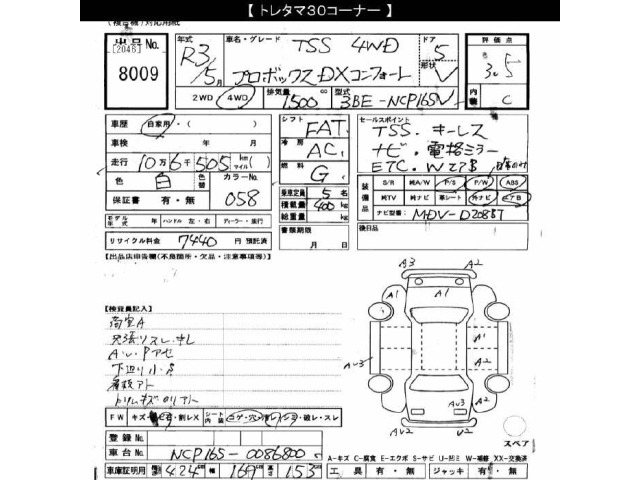 【 トレタマ30コーナー 】
出品No.
[2046]
8009
年式
R3/5月
車名・グレード TSS 4WD
プロボックス DXコンフォート
ドア 5
形状 V
評価点
3.5
内装 C
2WD 4WD
排気量 1500 cc
型式 3BE-NCP165V
車歴 自家用・( )
車検 年 月
走行 10万6千505 km マイル
色 白 色替 カラーNo. 058
保証書 有・無
モデル年式 年 ハンドル 左・右 ディーラー・並行
リサイクル料金 7440 円 預託済
シフト FAT
冷房 AC
燃料 G
乗車定員 5 名
積載量 400 kg
総重量 kg
書類期限 月 日
セールスポイント
TSS. キーレス
ナビ. 電格ミラー
ETC. WエアB
装備品
S/R 純A/W P/S P/W ABS
純TV 純ナビ 革シート 外ナビ エアB
ナビ型番 MDV-D208BT
後日品
【出品店申告欄(不良箇所・欠品・注意事項等)】
【検査員記入】
荷室A
A・U・Pアセ
下廻り小サ
看板アト
FW キズ 割レX シート内張 コゲ・穴 破レ・スレ
登録No.
車台No. NCP165-0086800
車庫証明用 長さ 424 cm 幅 169 cm 高さ 153 cm
A3 A2
A1 A1
A1 A2
AU3 A2
AU3
AU2 AU2
スペア
A-キズ C-腐食 E-エクボ S-サビ U-凹ミ W-補修 XX-交換済
工具 有・無 ジャッキ 有・無